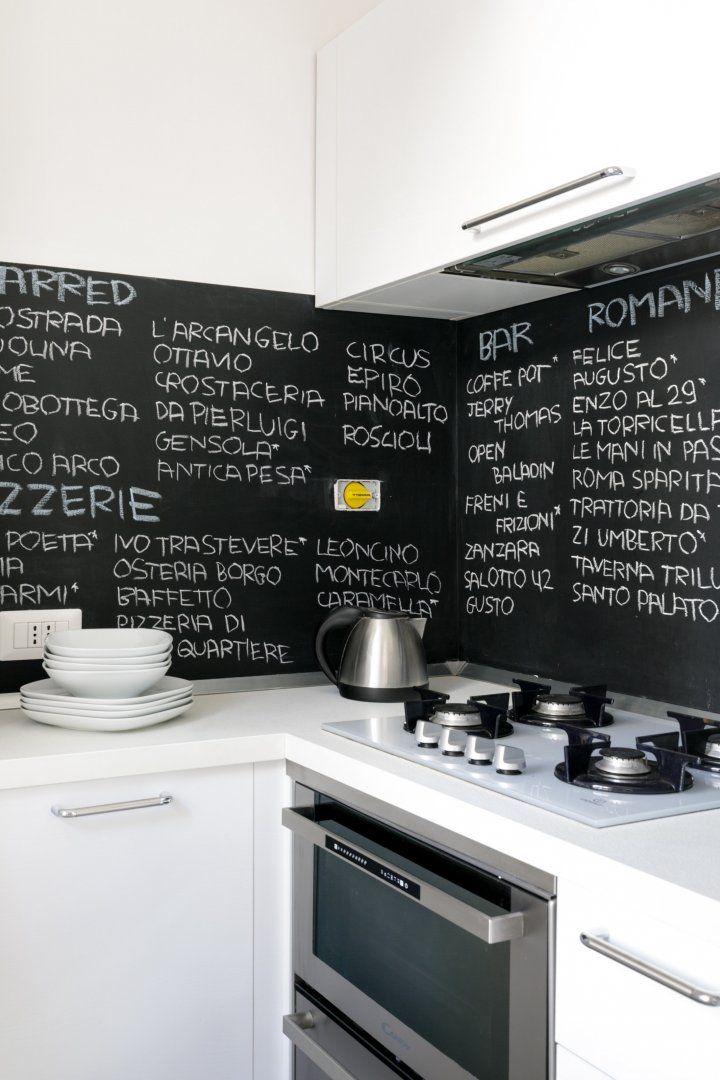 ARRED
OSTRADA
ME
OBOTTEGA
EO
ICO ARCO
L'ARCANGELO
OTTAVIO
CROSTACERIA
DA PIERLUIGI
GENSOLA*
ANTICA PESA*
CIRCUS
EPIRO
PIANOALTO
ROSCIOLI
ZZERIE
POETA*
IA
ARMI*
IVO TRASTEVERE*
OSTERIA BORGO
BAFFETTO
PIZZERIA DI
QUARTIERE
LEONCINO
MONTECARLO
CARAMELLA*
BAR
COFFE POT*
JERRY
THOMAS
OPEN
BALADIN
FRENI E
FRIZIONI*
ZANZARA
SALOTTO 42
GUSTO
ROMANE
FELICE
AUGUSTO*
ENZO AL 29*
LA TORRICELLA
LE MANI IN PAS
ROMA SPARITA
TRATTORIA DA
ZI UMBERTO*
TAVERNA TRILU
SANTO PALATO
CANDY